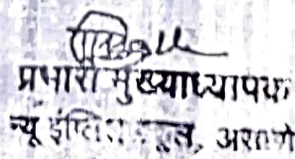 प्रभारी मुख्याध्यापक
न्यू इंग्लिश स्कूल,